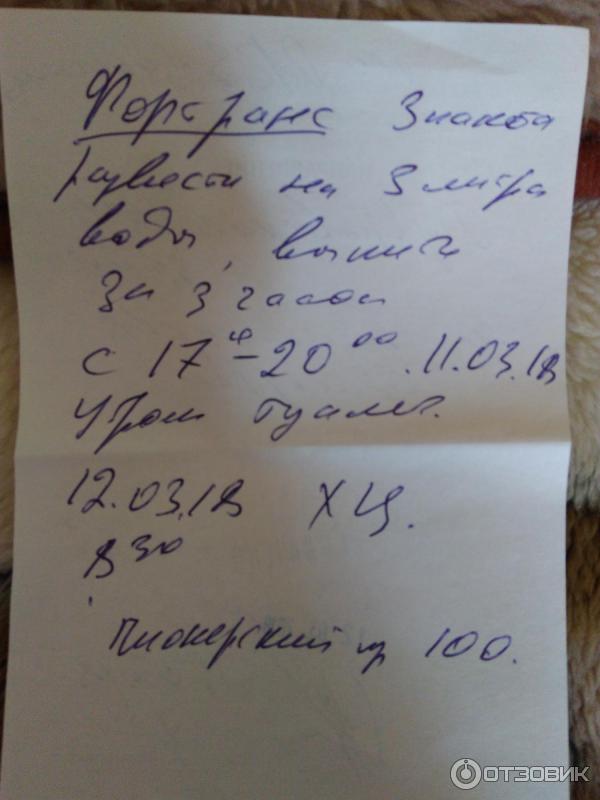 Фортранс 3 пакета
развести на 3 литра
воды, выпить
за 3 часа
с 17 00 - 20 00. 11.03.18
Утром туалет.
12.03.18 ХЦ.
8 30
Пионерский пр 100.
ОТЗОВИК